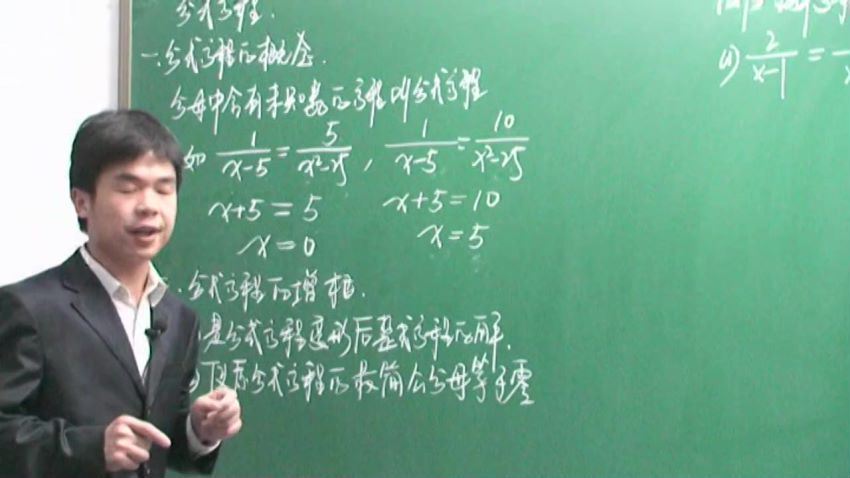 分式方程.
一.分式方程的概念.
分母中含有未知数的方程叫分式方程
如 1/(x-5) = 5/(x²-25), 1/(x-5) = 10/(x²-25)
x+5=5 x+5=10
x=0 x=5
.分式方程的增根.
是分式方程变形后整式方程的解.
使原分式方程的最简公分母等于零
(1) 2/(x-1) =